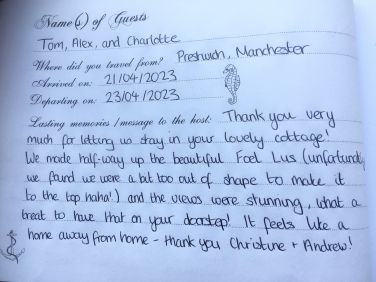 Name(s) of Guests
Tom, Alex, and Charlotte
Where did you travel from? Prestwich, Manchester
Arrived on: 21/04/2023
Departing on: 23/04/2023
Lasting memories / message to the host: Thank you very
much for letting us stay in your lovely cottage!
We made half-way up the beautiful Foel Lus (unfortunately
we found we were a bit too out of shape to make it
to the top haha!) and the views were stunning, what a
treat to have that on your doorstep! It feels like a
home away from home - thank you Christine + Andrew!